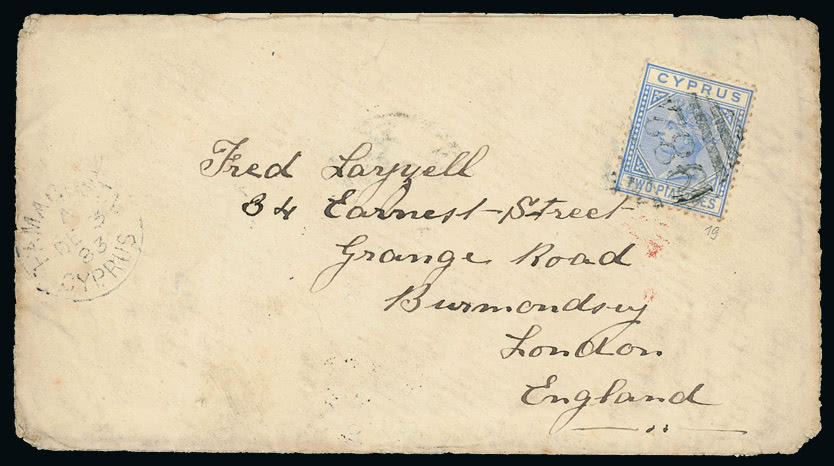 CYPRUS
TWO PIASTRES
982
Fred Layzell
84 Earnest-Street
Grange Road
Burmondsey
London
England
19
FAMAGUSTA
DE
83
CYPRUS